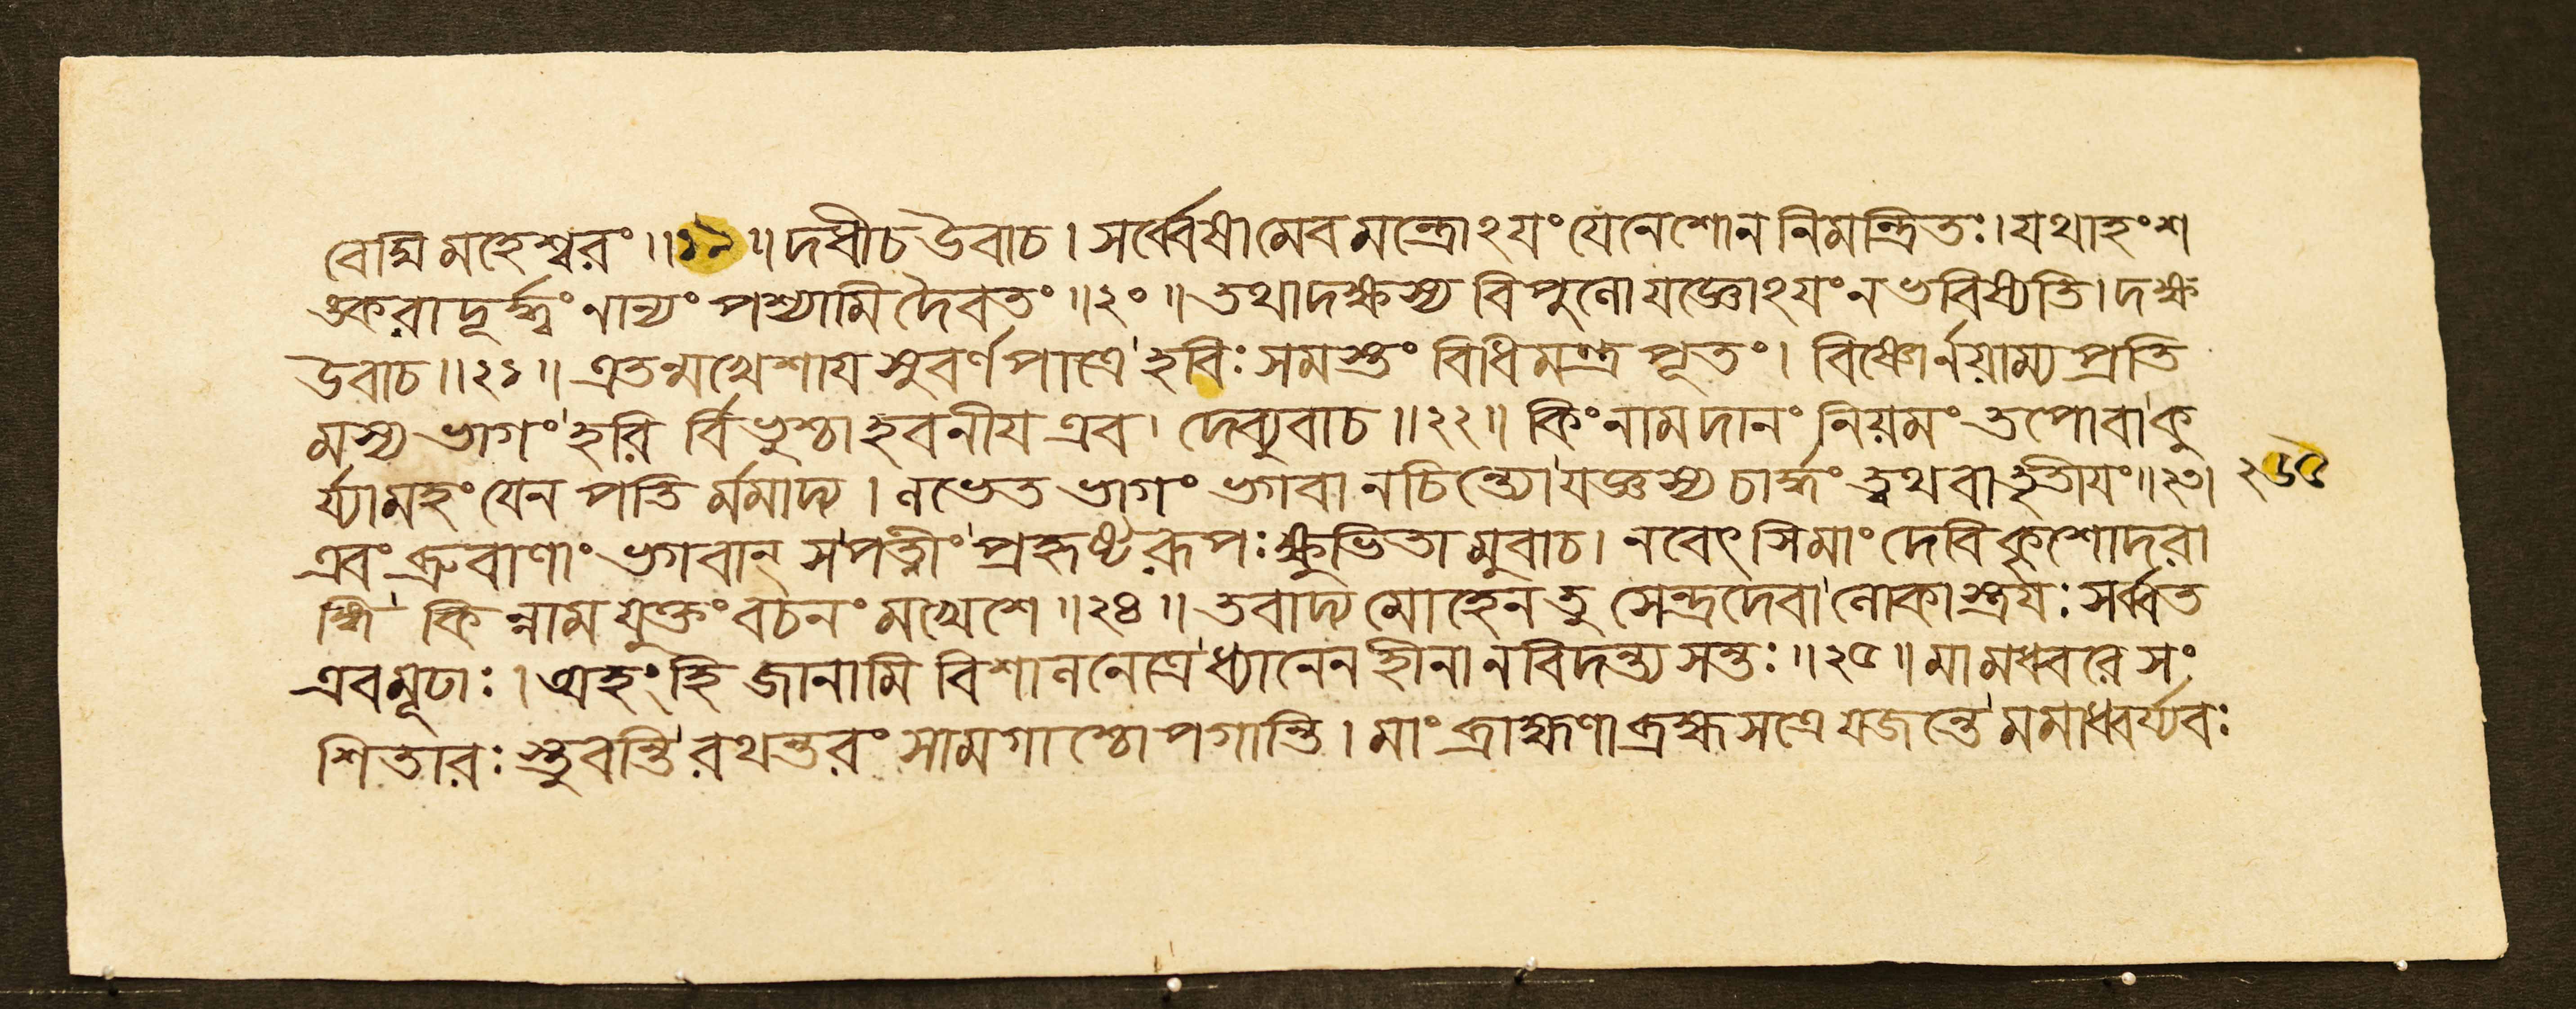 বেদ্মি মহেশ্বরং ॥ ১৯ ॥ দধীচ উবাচ । সর্ব্বেষামেব মন্ত্রোঽযং যেনেশো ন নিমন্ত্রিতঃ । যথাহং শ
ঙ্করাদূর্দ্ধ্বং নান্যং পশ্যামি দৈবতং ॥ ২০ ॥ তথা দক্ষস্য বিপুলো যজ্ঞোঽযং ন ভবিষ্যতি । দক্ষ
উবাচ ॥ ২১ ॥ এতন্মখেশায সুবর্ণপাত্রে হবিঃ সমস্তং বিধিমন্ত্রপূতং । বিষ্ণোর্নয়াম্যপ্রতি
মস্য ভাগং হরি র্বিভুশ্চাহবনীয এব । দেব্যুবাচ ॥ ২২ ॥ কিং নাম দানং নিয়মং তপো বা কু
র্য্যামহং যেন পতি র্মমাদ্য । লভেত ভাগং ভগবানচিন্ত্যো যজ্ঞস্য চার্দ্ধং ত্বথবা তৃতীযং ॥ ২৩ । ২৬৫
এবং ব্রুবাণাং ভগবান্ স পত্নীং প্রহৃষ্টরূপঃ ক্ষুভিতামুবাচ । ন বেৎসি মাং দেবি কৃশোদরা
ঙ্গি কিন্নাম যুক্তং বচনং মখেশে ॥ ২৪ ॥ তবাদ্য মোহেন তু সেন্দ্রদেবা লোকাস্ত্রযঃ সর্ব্বত
এব মূঢাঃ । অহং হি জানামি বিশালনেত্রে ধ্যানেন হীনা ন বিদন্ত্যসন্তঃ ॥ ২৫ ॥ মামধ্বরে সং
শিতারঃ স্তুবন্তি রথন্তরং সামগাশ্চোপগান্তি । মাং ব্রাহ্মণা ব্রহ্মসত্রে যজন্তে মমাধ্বর্য্যবঃ